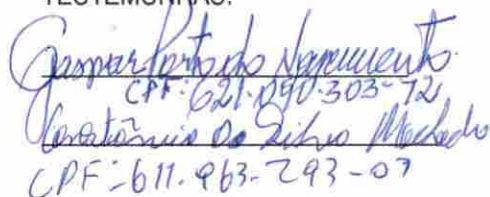 TESTEMUNHAS:
Gaspar Porto do Nascimento
CPF: 621.090.303-72
da Silva Machado
CPF: 611.963.293-07